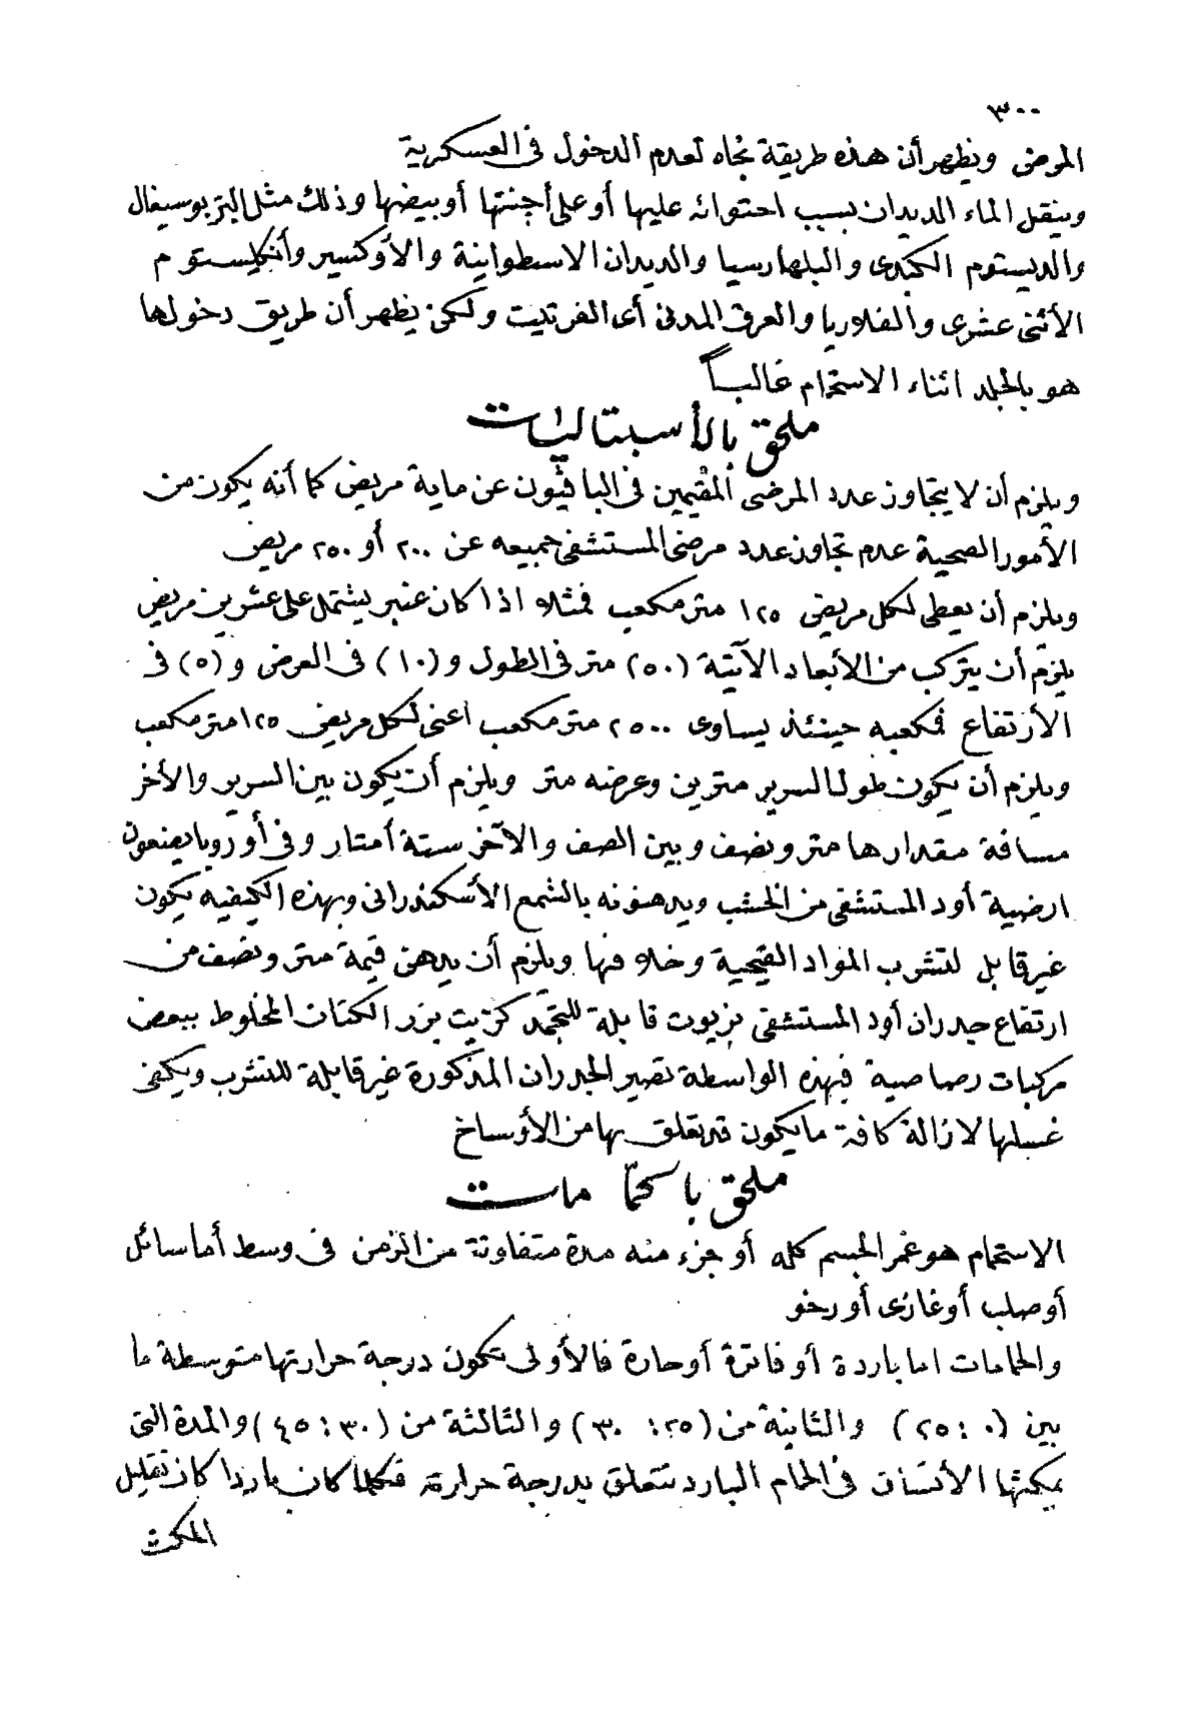 ٣٠٠
المرض ويظهر أن هذه طريقة نجاه لعدم الدخول فى العسكرية
وينقل الماء الديدان بسبب احتوائه عليها أو على أجنتها أو بيضها وذلك مثل التريوسيفال
والديستوم الكبدى والبلهارسيا والديدان الاسطوانية والأوكسير وأنكلستوم
الأثنى عشرى والفلاريا والعرق المدنى أى الفرتيت ولكن يظهر أن طريق دخولها
هو بالجلد اثناء الاستحمام غالباً
ملحق بالأسبتاليات
ويلزم أن لا يتجاوز عدد المرضى المقيمين فى البافيون عن ماية مريض كما أنه يكون من
الأمور الصحية عدم تجاوز عدد مرضى المستشفى جميعه عن ٢٠٠ أو ٢٥٠ مريض
ويلزم أن يعطى لكل مريض ١٢٥ متر مكعب فمثلا اذا كان عنبر يشتمل على عشرين مريض
يلزم أن يتركب من الأبعاد الآتية (٥٠) متر فى الطول و (١٠) فى العرض و (٥) فى
الأرتفاع فمكعبه حينئذ يساوى ٢٥٠٠ متر مكعب اعنى لكل مريض ١٢٥ متر مكعب
ويلزم أن يكون طول السرير مترين وعرضه متر ويلزم أن يكون بين السرير والأخر
مسافة مقدارها متر ونصف وبين الصف والآخر ستة أمتار وفى أوروپا يصنعون
ارضية أود المستشفى من الخشب ويدهنونه بالشمع الأسكندرانى وبهذه الكيفيه يكون
غير قابل لتشرب المواد القيحية وخلافها ويلزم أن يدهن قيمة متر ونصف من
ارتفاع جدران أود المستشفى بزيوت قابلة للتجمد كزيت بزر الكتان المخلوط ببعض
مركبات رصاصية فبهذه الواسطة تصير الجدران المذكورة غير قابلة للتشرب ويكفى
غسلها لازالة كافة ما يكون قد تعلق بها من الأوساخ
ملحق بالحمّامات
الاستحمام هو غمر الجسم كله أو جزء منه مدة متفاوتة من الزمن فى وسط أما سائل
أو صلب أو غازى أو رخو
والحمامات اما باردة أو فاترة أو حارة فالأولى تكون درجة حرارتها متوسطة ما
بين (٠ : ٢٥) والثانية من (٢٥ : ٣٠) والثالثة من (٣٠ : ٤٥) والمدة التى
يمكثها الأنسان فى الحمام البارد تتعلق بدرجة حرارته فكلما كان باردا كان تقليل
المكث